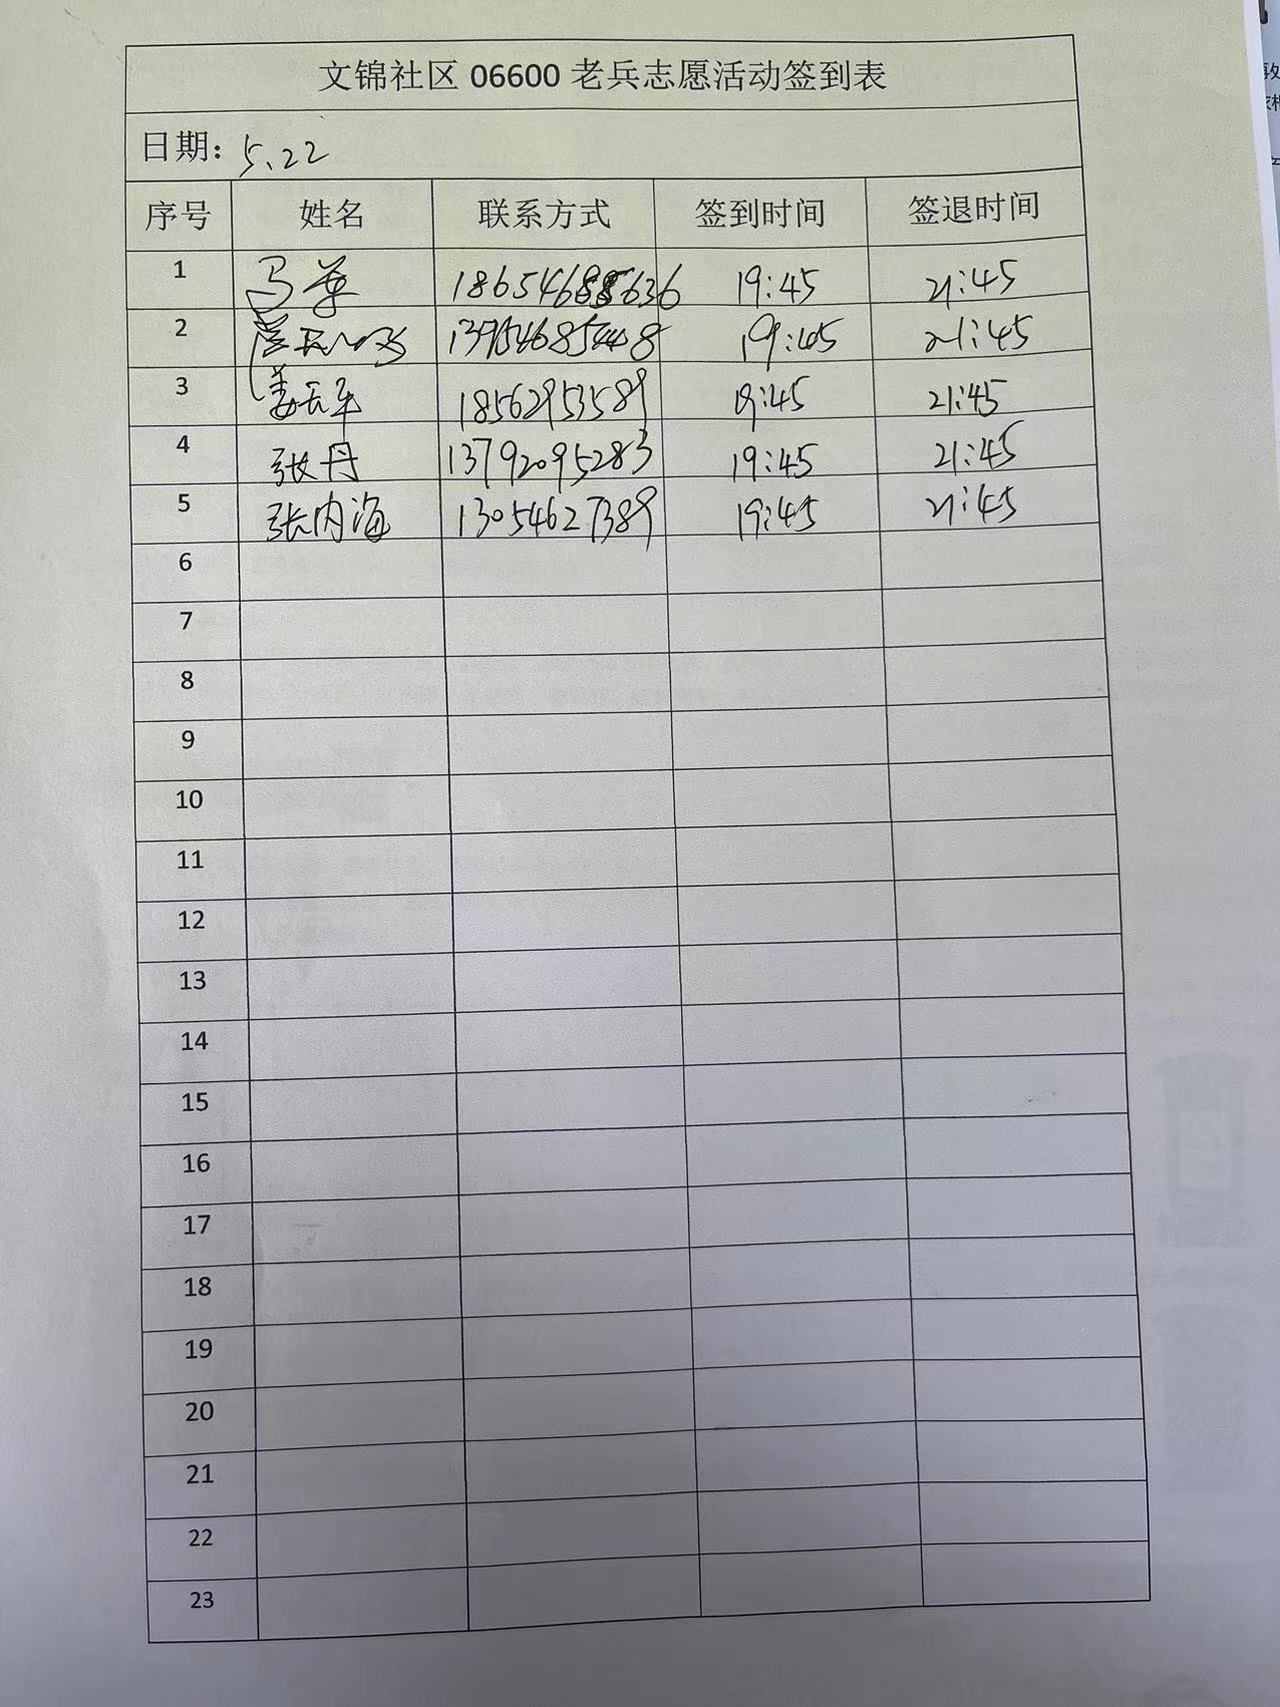 文锦社区 06600 老兵志愿活动签到表
日期: 5.22
序号 姓名 联系方式 签到时间 签退时间
1 马 18654688636 19:45 21:45
2 13954685448 19:45 21:45
3 姜兵军 18562953589 19:45 21:45
4 张丹 13792095283 19:45 21:45
5 张内海 13054627389 19:45 21:45
6
7
8
9
10
11
12
13
14
15
16
17
18
19
20
21
22
23